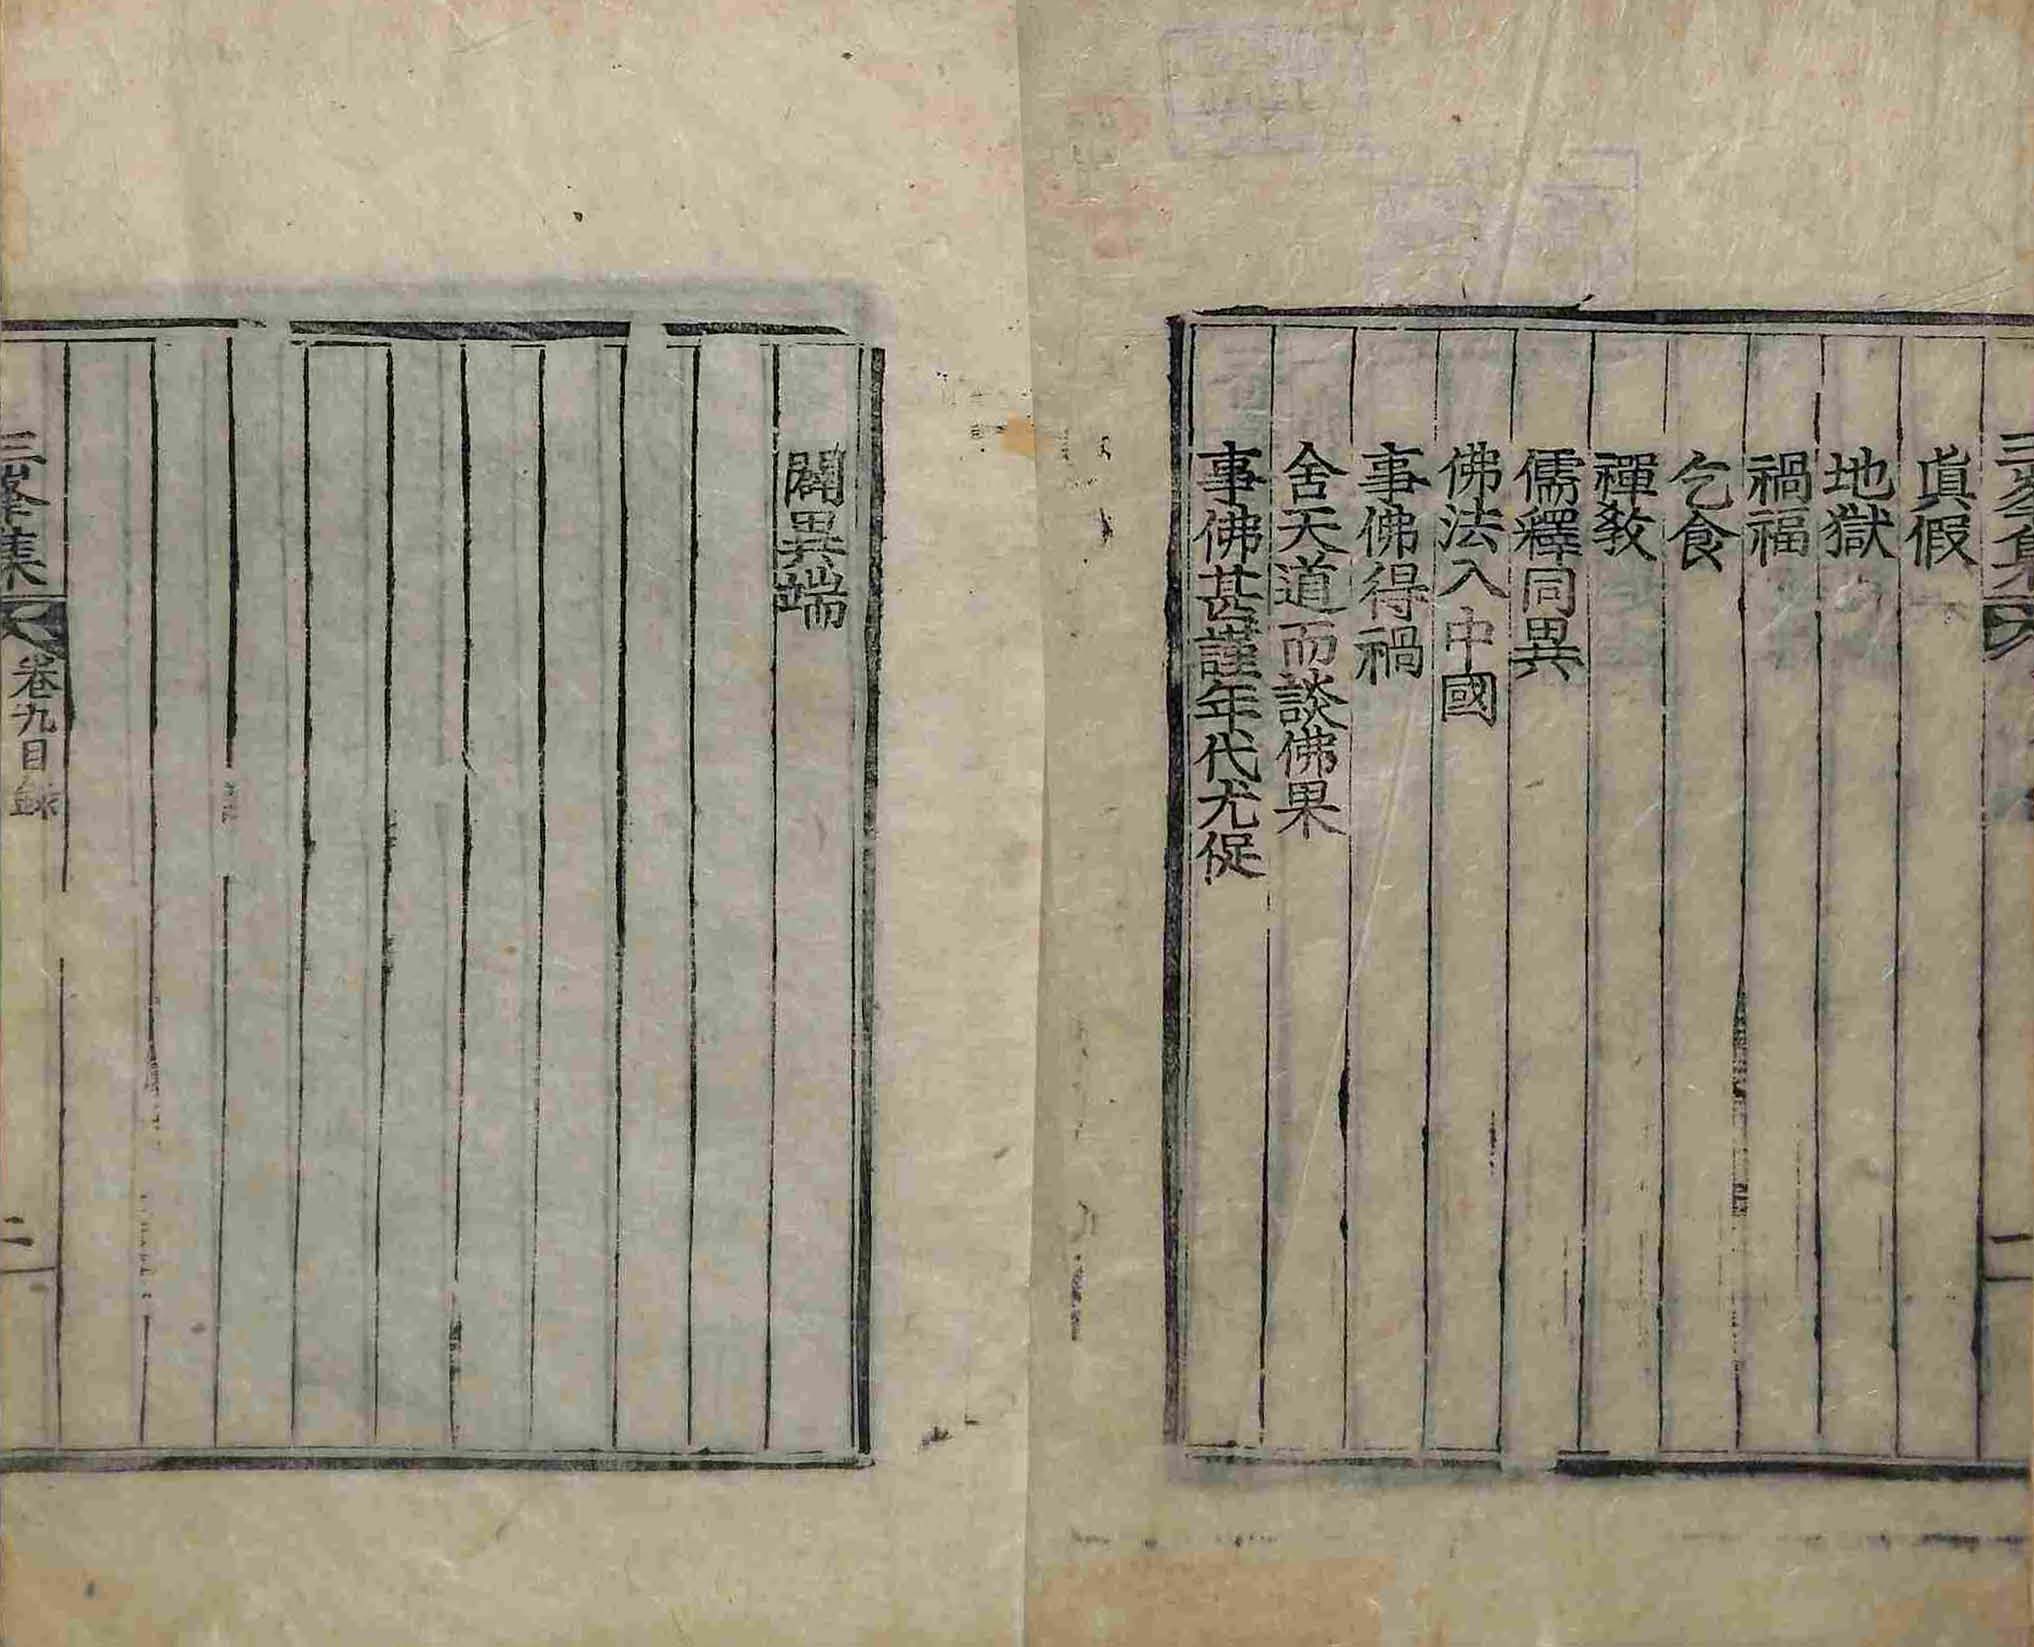 三峯集
二
眞假
地獄
禍福
乞食
禪教
儒釋同異
佛法入中國
事佛得禍
舍天道而談佛果
事佛甚謹年代尤促
闢異端
三峯集
卷九目錄
二